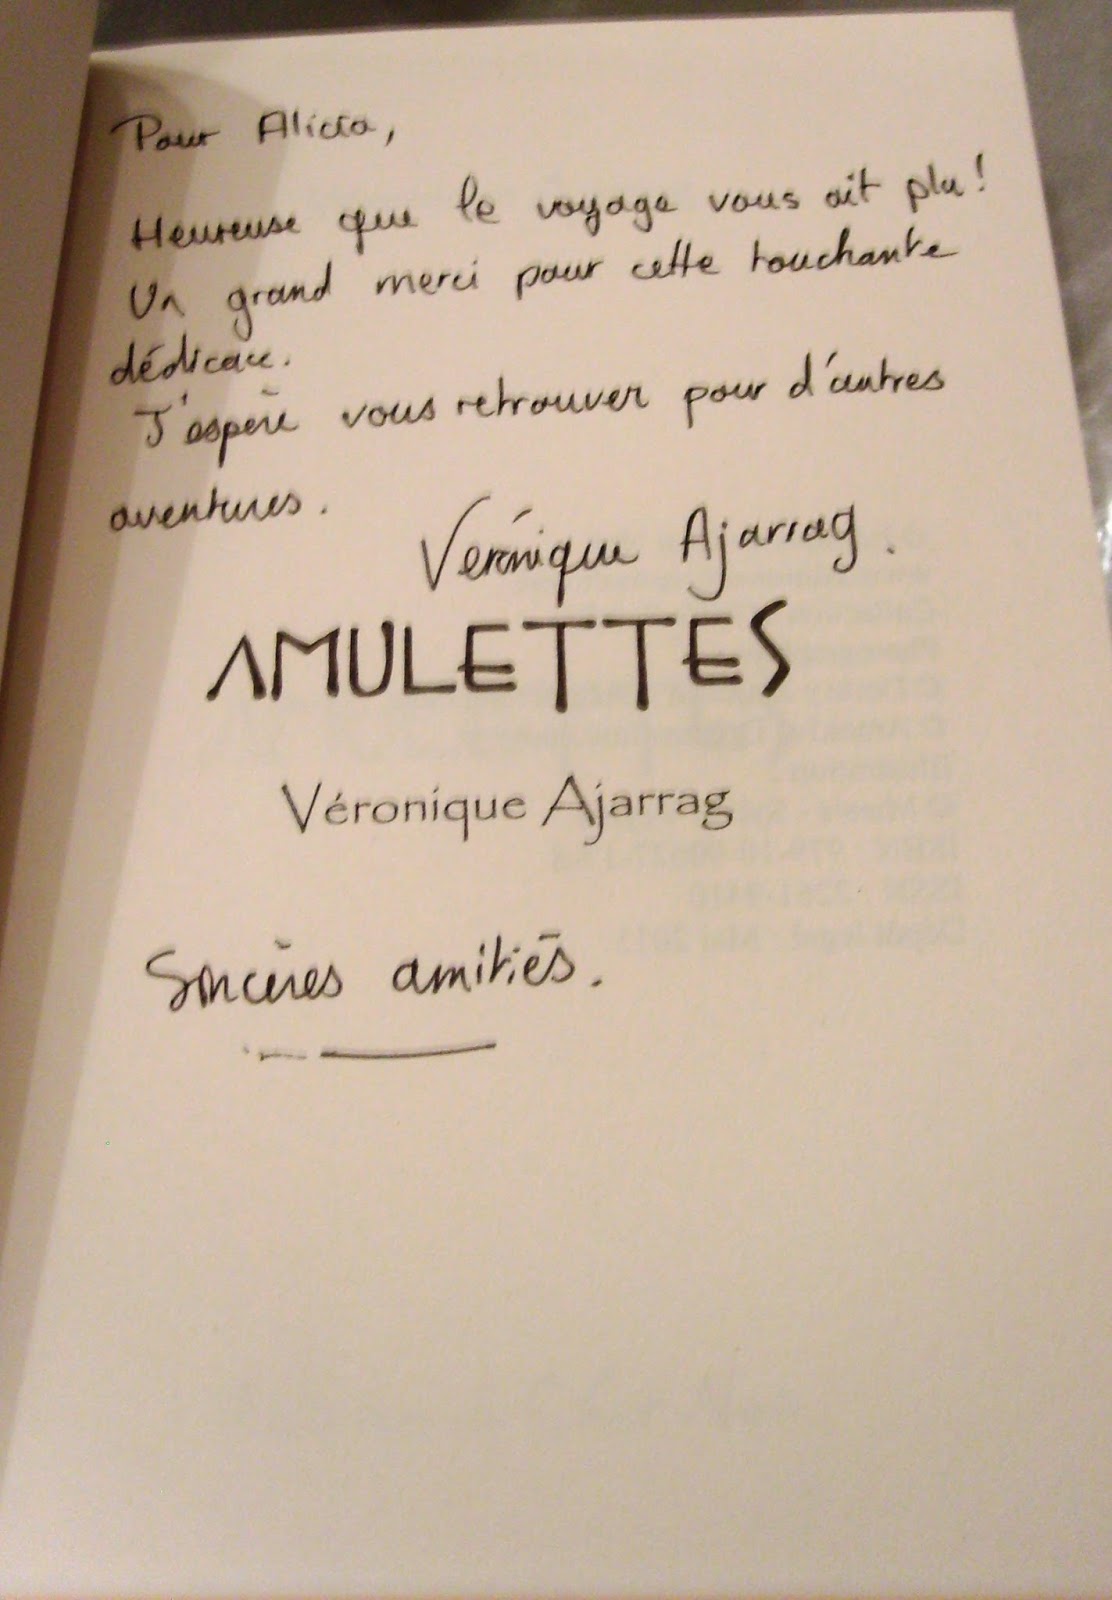 Pour Alicia,
Heureuse que le voyage vous ait plu !
Un grand merci pour cette touchante
dédicace.
J'espère vous retrouver pour d'autres
aventures.
Véronique Ajarrag.
AMULETTES
Véronique Ajarrag
Sincères amitiés.